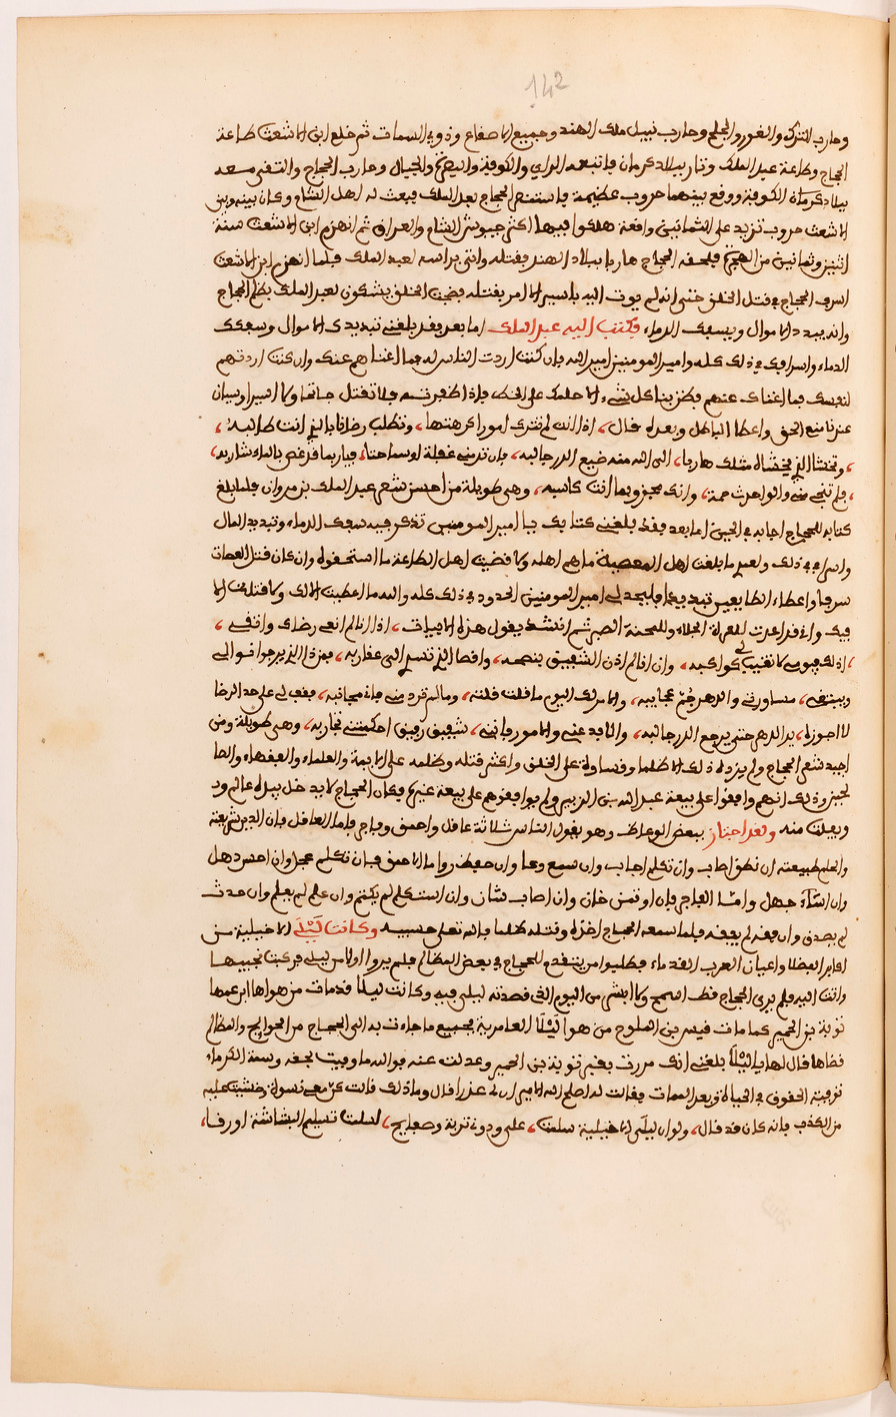 142
وحارب الترك والغور والخلج وحارب نبيل ملك الهند وجميع الاصفاع وذوي السمات ثم خلع ابن الاشعث طاعة
الحجاج وطاعة عبد الملك وثار ببلاد كرمان فاتبعه الراي والكوفة والبصرة والجبال وحارب الحجاج والتفى معه
ببلاد كرمان الكوفة ووفع بينهما حروب عظيمة فاستنصر الحجاج بعبد الملك فبعث له اهل الشام وكان بينه وبين
الاشعث حروب تزيد على الثمانين وافعة هلكوا فيها اكثر جيوش الشام والعراق ثم انهزم ابن الاشعث سنة
اثنين وثمانين من الهجرة فلحفه الحجاج هاربا ببلاد الهند بفتله واتى براسه لعبد الملك فلما انهزم ابن الاشعث
اسرف الحجاج في فتل الخلق حتى انه لم يوت اليه باسير الا امر بفتله فضجت الخلق يشكون لعبد الملك بظلم الحجاج
وانه يبدد الاموال ويسفك الدماء فكتب اليه عبد الملك اما بعد فقد بلغني تبديدك الاموال وسفكك
الدماء واسرافك في ذلك كله وامير المومنين امير الله فان كنت اردت الناس له فما اغناهم عنك وان كنت اردتهم
لنفسك فما اغناك عنهم فظن بنا كل شيء الا حلمك على الخطا فاذا ظفرت فلا تفتل جانحا ولا اسيرا وسيان
عندنا منع الحق واعطا الباطل وبعده فال، اذا انت لم تترك امورا كرهتها، وتطلب رضاءنا بالذي انت طالبه،
، وتخشا الذي يخشاه مثلك هاربا، الى الله منه ضيع الدر جالبه، فان تر مني غفلة او سماحتا، فيا ربما فد غص بالماء شاربه،
، فلم تنجي مني والحوادث جمة، وانك مجزي بما انت كاسبه، وهي طويلة من احسن شعر عبد الملك بن مروان فلما بلغ
كتابه للحجاج اجابه في الحين اما بعد فقد بلغني كتابك يا امير المومنين تذكر فيه سفك الدماء وتبديد المال
واسرافي في ذلك ولعمري ما بلغت اهل المعصية ما هم اهله ولا فضيت اهل الطاعة ما استحفوه وان كان فتل العصات
سرفا واعطاء المطايعين تبديدا فليحد لي امير المومنين الحدود في ذلك كله والله ما اعطيت الا لك ولا فتلت الا
فيك وانشد يفول هذه الابيات، اذا انا لم ابغي رضاك واتفي،
، اذاك فيومي لا تغيب كواكبه، وان انا لم اذن الشفيق بنصحه، وافصا الذي تسري الي عفاربه، فمن ذا الذي يرجوا نوالي
ويبتغي، مساورتي والدهر جم عجايبه، والامر لك اليوم ما فلت فلته، وما لم ترده مني فاني مجانبه، ففف لي على حد الرضا
لا اجوزه، يد الدهر حتى يرجع الدر جالبه، والا فدعني والامور فانني، شفيق رفيق احكمتني تجاربه، وهي طويلة ومن
اجيد شعر الحجاج ولم يزده ذلك الا ظلما وفساوة على الخلق واكثر فتله وظلمه على الايمة والعلماء والفقهاء والصا
لحين وذلك انهم وافقوا على بيعة عبد الله بن الزبير ولم يوافقوهم على بيعة غيره فكان الحجاج لا يدخل بيده عالم ود
ويفلت منه ولقد اجتاز ببعض الوعاظ وهو يفول الناس ثلاثة عافل واحمق وفاجر فاما العافل فان الدين شريعته
والحلم طبيعته ان نطق اصاب وان تكلم اجاب وان سمع وعا وان حفظ روا واما الاحمق فان تكلم عجل وان احدث ذهل
وان اشآه جهل واما الفاجر فان اوتمن خان وان اصاب شان وان استكتم لم يكتم وان علم لم يعلم وان حدث
لم يصدق وان فقه لم يفقه فلما سمعه الحجاج اخذه وفتله ظلما فالله تعلى حسيبه وكانت ليلى الاخيلية من
اكابر الفضلا واعيان العرب الفدماء فطلبوا من يتفدم للحجاج في بعض المظالم فلم يروا اولا من ليلى فركبت نجيبها
واتت اليه فلم يرى الحجاج فط اسمح ولا ابشر من اليوم الذي فصدته ليلى فيه وكانت ليلا فد مات من هواها ابن عمها
توبة بن الحمير كما مات فيس بن الملوح من هوا ليلا العامرية فجميع ما جاءت به الى الحجاج من الحوايج والمظالم
فضاها فال لها يا ليلا بلغني انك مررت بفبر توبة بن الحمير وعدلت عنه فوالله ما وفيت بحفه وسنة الكرماء
توفية الحفوق في الحياة وبعد الممات ففالت له اصلح الله الامير ان لي عذرا فال وما ذلك فالت كن معي نسوة وخشيت عليه
من الكذب فانه كان فد فال، ولو ان ليلى الاخيلية سلمت، علي ودوني تربة وصفايح، لسلمت تسليم البشاشة او زفا،